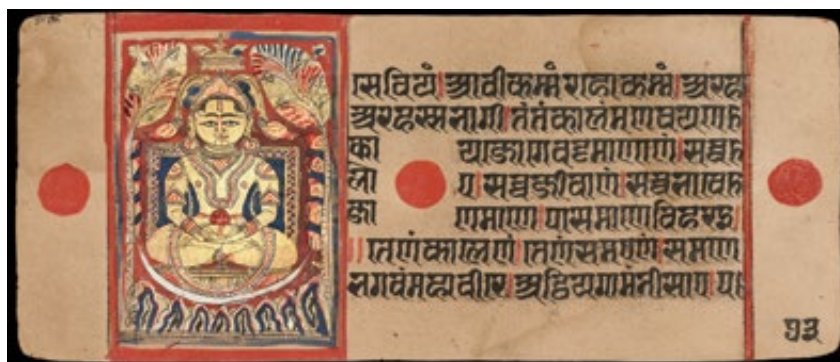 सेवियं।आवीकम्मंरहोकम्मं।अरहा
अरहस्सभागी।तंतंकालंमणवयण
का योगेवट्टमाणाणं।सव्व
लोए।सव्वजीवाणं।सव्वभावे
जाणमाणे।पासमाणेविहरइ।
॥तेणंकालेणं।तेणंसमएणं।समणे
भगवंमहावीरे।अट्ठियगामंनीसाए।